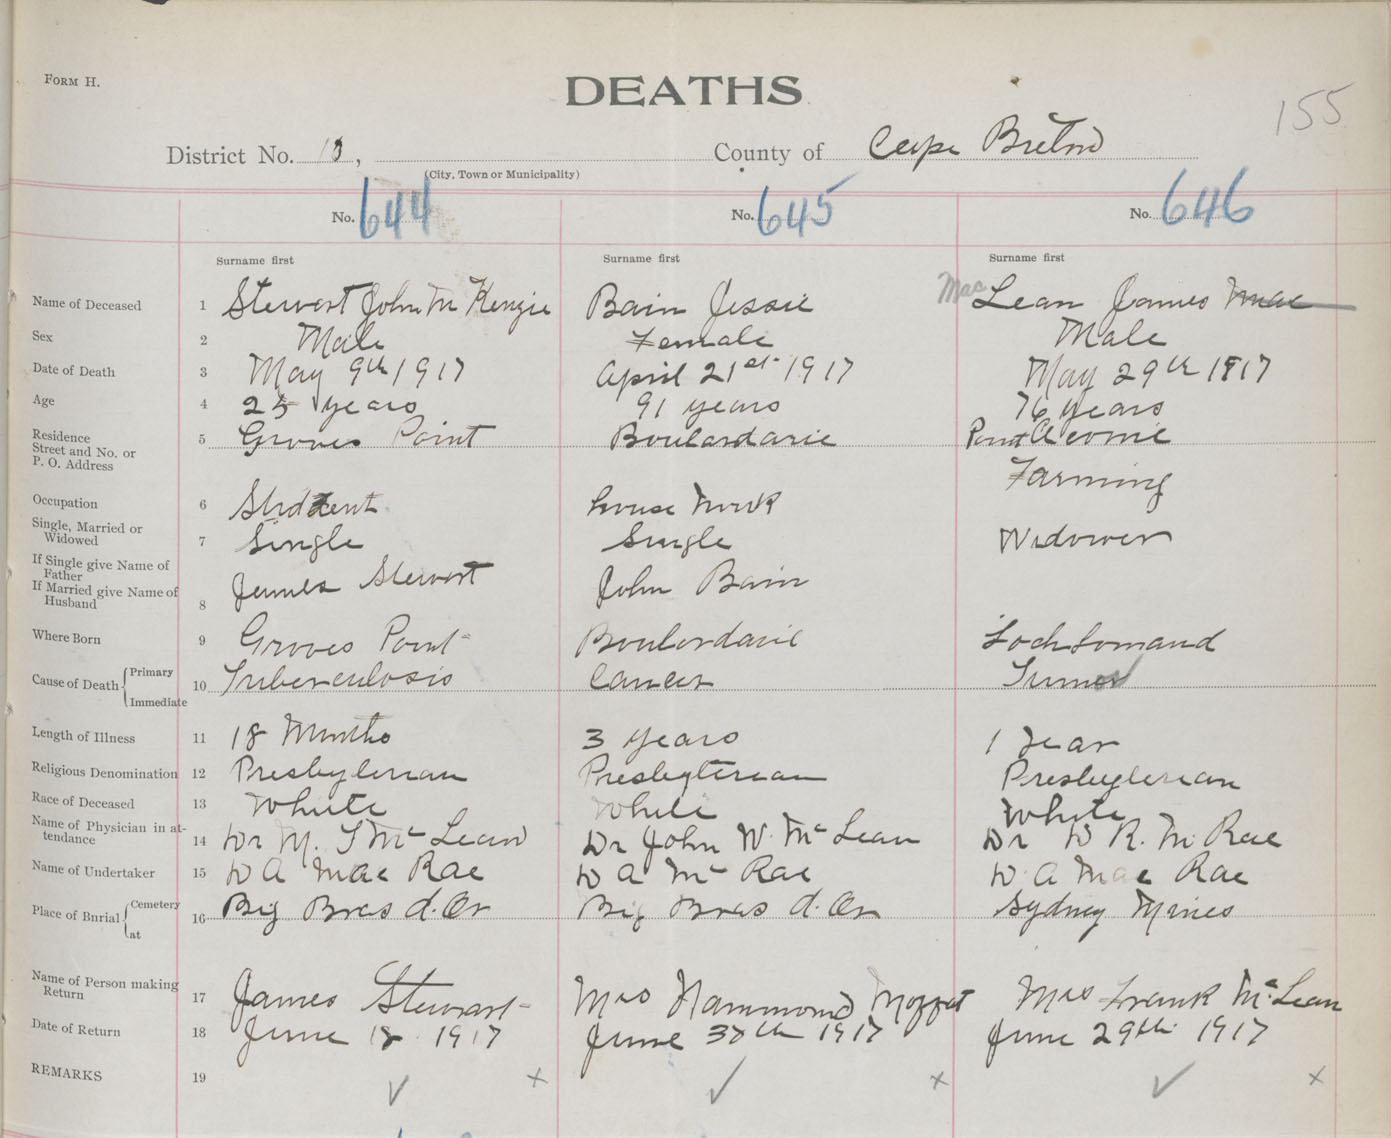 FORM H.
DEATHS
155
District No. 10, County of Cape Breton
(City, Town or Municipality)
No. 644 No. 645 No. 646
Surname first Surname first Surname first
Name of Deceased 1 Stewart John Mc Kenzie Bain Jessie Mac Lean James Mac
Sex 2 Male Female Male
Date of Death 3 May 9th 1917 April 21st 1917 May 29th 1917
Age 4 25 years 91 years 76 years
Residence Street and No. or P. O. Address 5 Groves Point Boulardarie Point Aconie
Occupation 6 Student house work Farming
Single, Married or Widowed 7 Single Single Widower
If Single give Name of Father
If Married give Name of Husband 8 James Stewart John Bain
Where Born 9 Groves Point Boulardarie Loch Lomand
Cause of Death { Primary Immediate 10 Tuberculosis Cancer Tumor
Length of Illness 11 18 Months 3 years 1 year
Religious Denomination 12 Presbyterian Presbyterian Presbyterian
Race of Deceased 13 White White White
Name of Physician in attendance 14 Dr M. T Mc Lean Dr John W. Mc Lean Dr D R. Mc Rae
Name of Undertaker 15 D A Mac Rae D A Mc Rae D. A Mac Rae
Place of Burial { Cemetery at 16 Big Bras d. Or Big Bras d. Or Sydney Mines
Name of Person making Return 17 James Stewart Mrs Hammond Moffat Mrs Frank Mc Lean
Date of Return 18 June 18 1917 June 30th 1917 June 29th 1917
REMARKS 19